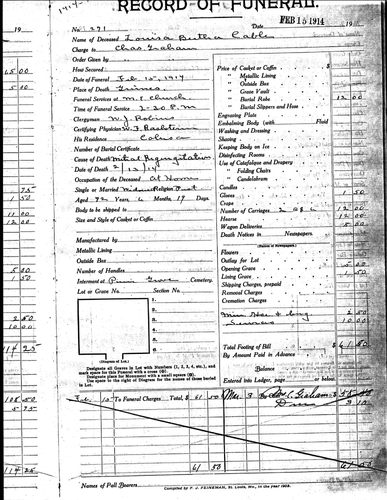 RECORD OF FUNERAL.
No. 271 Date FEB 15 1914 19
Name of Deceased Louisa Cable
Charge to Chas. Graham
Order Given by "
How Secured
Date of Funeral Feb. 15, 1914
Place of Death
Funeral Services at M. E. Church
Time of Funeral Service 2-30 P.M
Clergyman W. J. Robins
Certifying Physician W. F.
His Residence
Number of Burial Certificate
Cause of Death Mitral Regurgitation
Date of Death 2/13/14
Occupation of the Deceased At Home
Single or Married Widowed Religion Prot
Aged 72 Years, Months, 19 Days.
Body to be shipped to
Size and Style of Casket or Coffin
Manufactured by
Metallic Lining
Outside Box
Number of Handles
Interment at Grove Cemetery.
Lot or Grave No. Section No.
1.
2.
3.
4.
5.
(Diagram of Lot.)
Designate all Graves in Lot with Numbers (1, 2, 3, 4, etc.), and
mark space for this Funeral with a cross
Designate place for Monument with a small square
Use space to right of Diagram for the names of those buried
in Lot.
Price of Casket or Coffin $
" Metallic Lining
" Outside Box
" Grave Vault
" Burial Robe 12 00
" Burial Slippers and Hose
Engraving Plate
Embalming Body (with Fluid
Washing and Dressing
Shaving
Keeping Body on Ice
Disinfecting Rooms
Use of Catafalque and Drapery
" Folding Chairs
" Candelabrum
Candles
Gloves 1 50
Crape
Number of Carriages 12 00
Hearse 12 00
Wagon Deliveries 5 00
Death Notices in Newspapers.
(Names of Newspapers)
Flowers
Outlay for Lot
Opening Grave 5 00
Lining Grave 1 50
Shipping Charges, prepaid
Removal Charges
Cremation Charges
2 50
10 00
Total Footing of Bill $ 61 50
By Amount Paid in Advance
Balance
Entered into Ledger, page or below.
Feb. 15 To Funeral Charges Total, $ 61 50 Mar 3 By Graham
61 50
Names of Pall Bearers Compiled by F. J. FEINEMAN, St. Louis, Mo., in the year 1903.
19
65 00
5 00
75
1 50
11 00
12 00
5 00
1 50
2 50
10 00
114 25
108 50
5 75
114 25